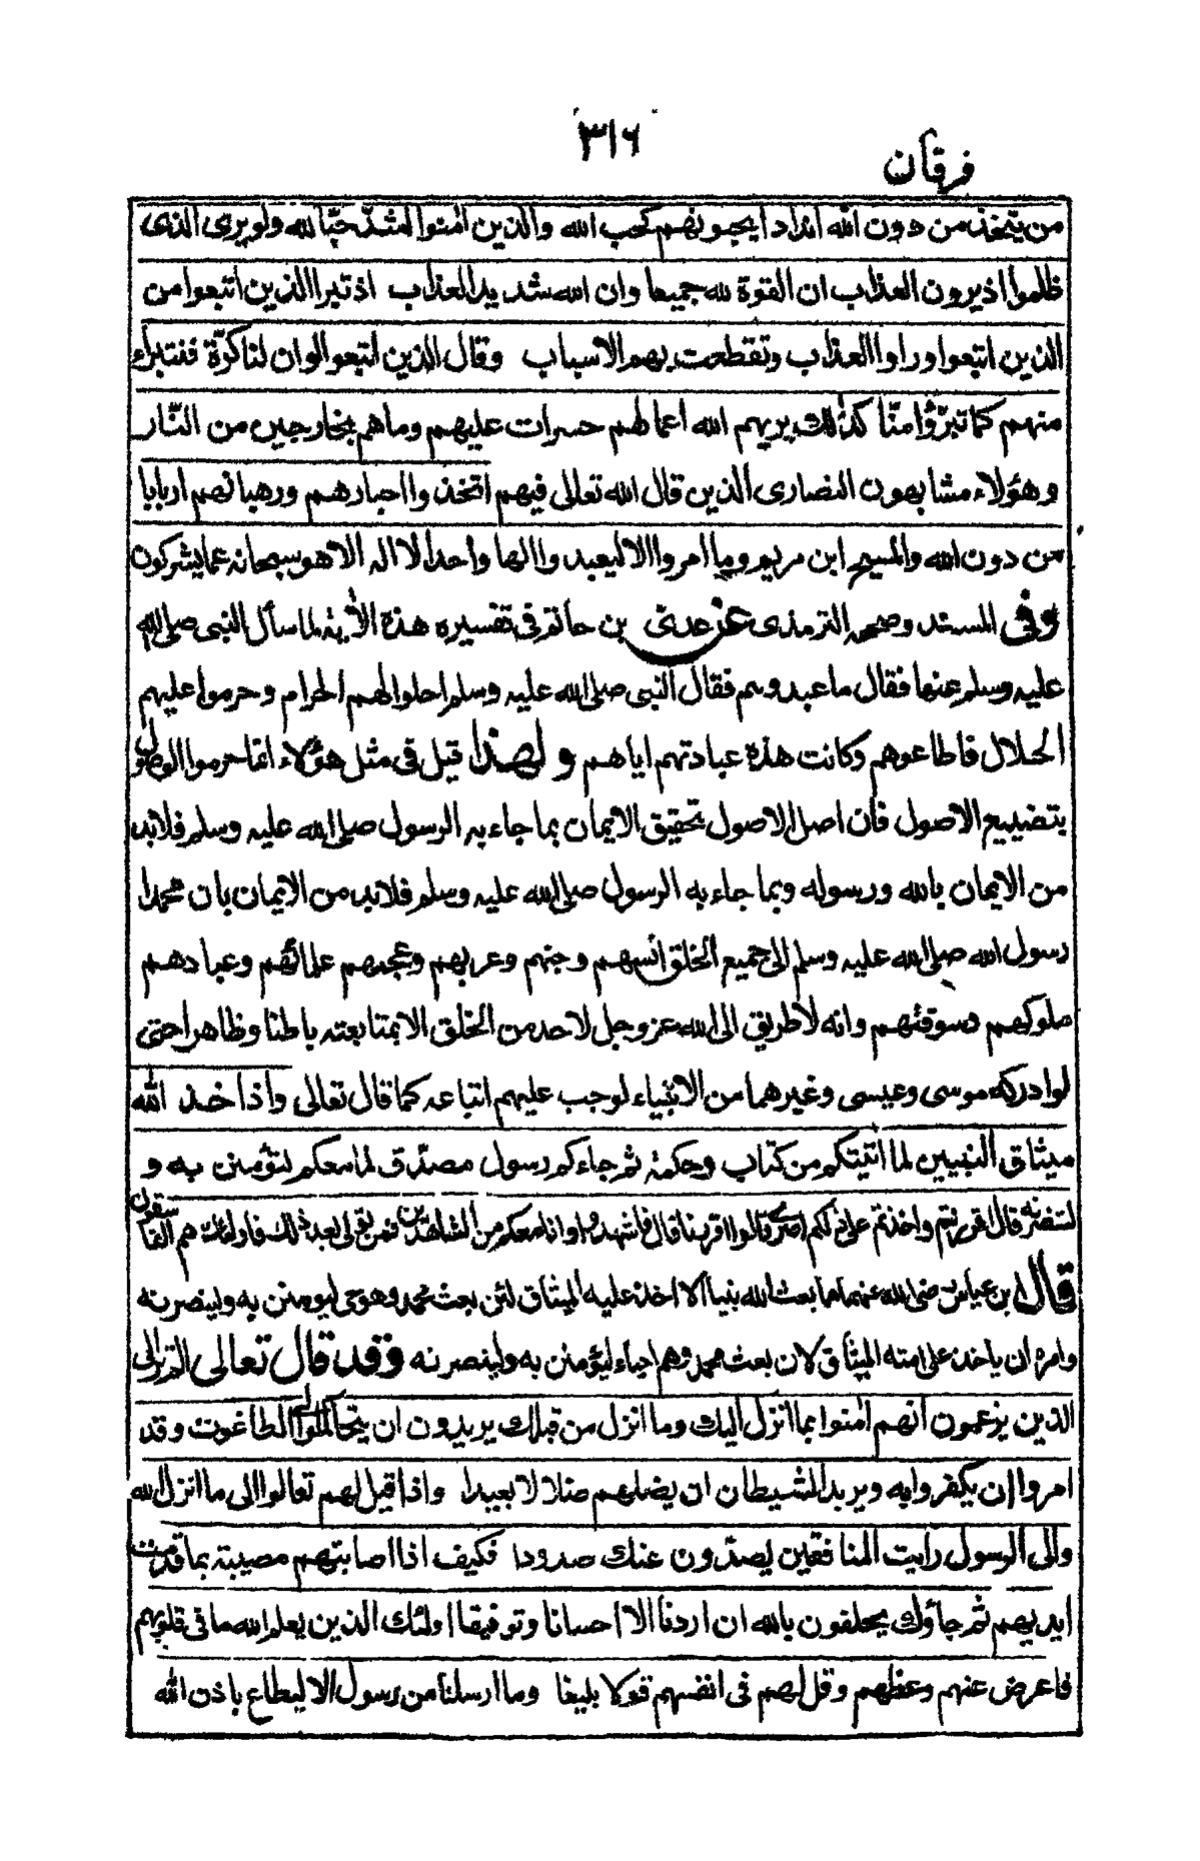 ٣١٦
فرقان
من يتخذ من دون الله اندادا يحبونهم كحب الله والذين اٰمنوا اشدّ حبّا لله ولو يرى الذى
ظلموا اذيرون العذاب ان القوة لله جميعا وان الله شديد العذاب اذ تبرا الذين اتبعوا من
الذين اتبعوا وراوا العذاب وتقطعت بهم الاسباب وقال الذين اتبعوا لوان لنا كرّة فنتبراء
منهم كما تبرّؤا منّا كذلك يريهم الله اعمالهم حسرات عليهم وماهم بخارجين من النّار
وهؤلاء مشابهون النصارى الذين قال الله تعالى فيهم اتخذوا احبارهم ورهبانهم اربابا
من دون الله والمسيح ابن مريم وما امروا الا ليعبدوا الها واحدا لا اله الا هو سبحانه عما يشركون
وفى المسند وصححه الترمذى عن عدى بن حاتم فى تفسيره هذه الاٰية لما سأل النبى صلى الله
عليه وسلم عنها فقال ما عبدوهم فقال النبى صلى الله عليه وسلم احلوا لهم الحرام وحرموا عليهم
الحلال فاطاعوهم وكانت هذه عبادتهم اياهم ولهذا قيل فى مثل هؤلاء انما حرموا الوصول
بتضييع الاصول فان اصل الاصول تحقيق الايمان بما جاء به الرسول صلى الله عليه وسلم فلابد
من الايمان بالله ورسوله وبما جاء به الرسول صلى الله عليه وسلم فلابد من الايمان بان محمدا
رسول الله صلى الله عليه وسلم الى جميع الخلق انسهم وجنهم وعربهم وعجمهم علمائهم وعبادهم
ملوكهم وسوقتهم وانه لا طريق الى الله عز وجل لاحد من الخلق الا بمتابعته باطنا وظاهرا حتى
لوادركه موسى وعيسى وغيرهما من الانبياء لوجب عليهم اتباعه كما قال تعالى واذا خذ الله
ميثاق النبيين لما اتيتكم من كتاب وحكمة ثم جاءكم رسول مصدّق لما معكم لتؤمنن به و
لتنصرنه قال اقررتم واخذتم على ذلكم اصرى قالوا اقررنا قال فاشهدوا وانا معكم من الشاهدين فمن تولى بعد ذلك فاولئك هم الفاسقون
قال ابن عباس رضى الله عنهما ما بعث الله نبيا الا اخذ عليه الميثاق لئن بعث محمد وهو حى ليومنن به ولينصرنه
وامره ان ياخذ على امته الميثاق لان بعث محمد وهم احياء ليؤمنن به ولينصرنه وقد قال تعالى الم تر الى
الذين يزعمون انهم اٰمنوا بما انزل اليك وما انزل من قبلك يريدون ان يتحاكموا الى الطاغوت وقد
امروا ان يكفروا به ويريد الشيطان ان يضلهم ضلالا بعيدا واذا قيل لهم تعالوا الى ما انزل الله
والى الرسول رايت المنافقين يصدّون عنك صدودا فكيف اذا اصابتهم مصيبة بما قدمت
ايديهم ثم جاؤك يحلفون بالله ان اردنا الا احسانا وتوفيقا اولئك الذين يعلم الله ما فى قلوبهم
فاعرض عنهم وعظهم وقل لهم فى انفسهم قولا بليغا وما ارسلنا من رسول الا ليطاع باذن الله